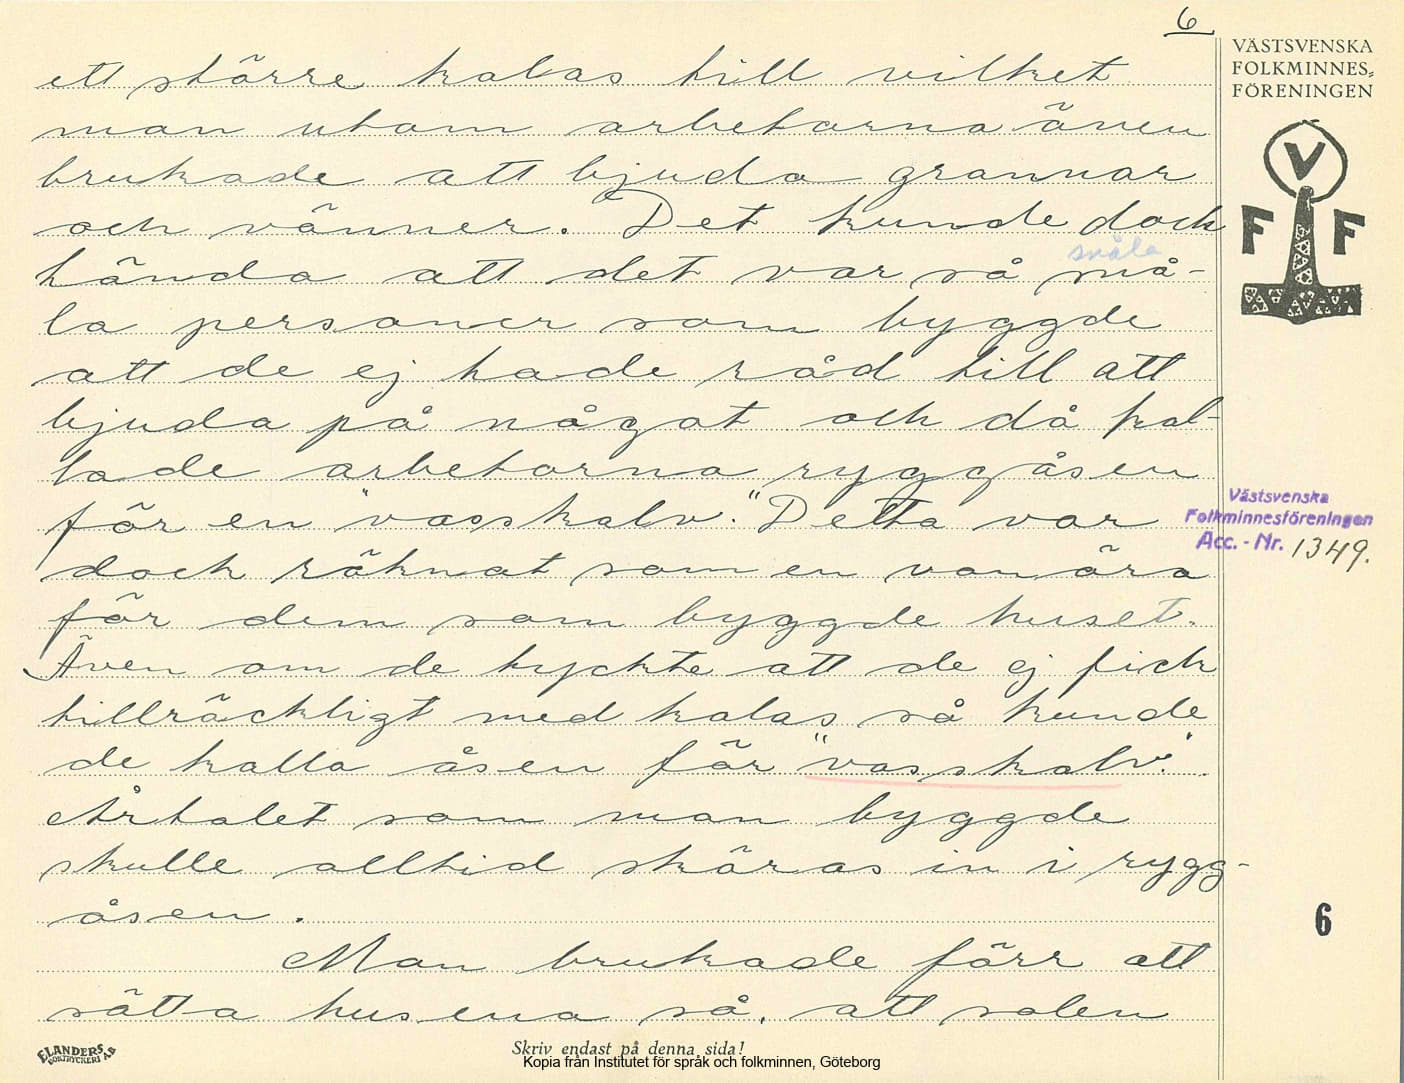 6
VÄSTSVENSKA
FOLKMINNES-
FÖRENINGEN
V
F F
ett större kalas till vilket
man utom arbetarna även
brukade att bjuda grannar
och vänner. Det kunde dock
snåla
hända att det var så snå-
la personer som byggde
att de ej hade råd till att
bjuda på något och då kal-
lade arbetarna ryggåsen
för en "vasskalv." Detta var
dock räknat som en vanära
för dem som byggde huset.
Även om de tyckte att de ej fick
tillräckligt med kalas så kunde
de kalla åsen för "vasskalv".
Årtalet som man byggde
skulle alltid skäras in i rygg-
åsen.
Man brukade förr att
sätta husena så, att solen
Västsvenska
Folkminnesföreningen
Acc. - Nr. 1349.
6
ELANDERS
BOKTRYCKERI AB
Skriv endast på denna sida!
Kopia från Institutet för språk och folkminnen, Göteborg